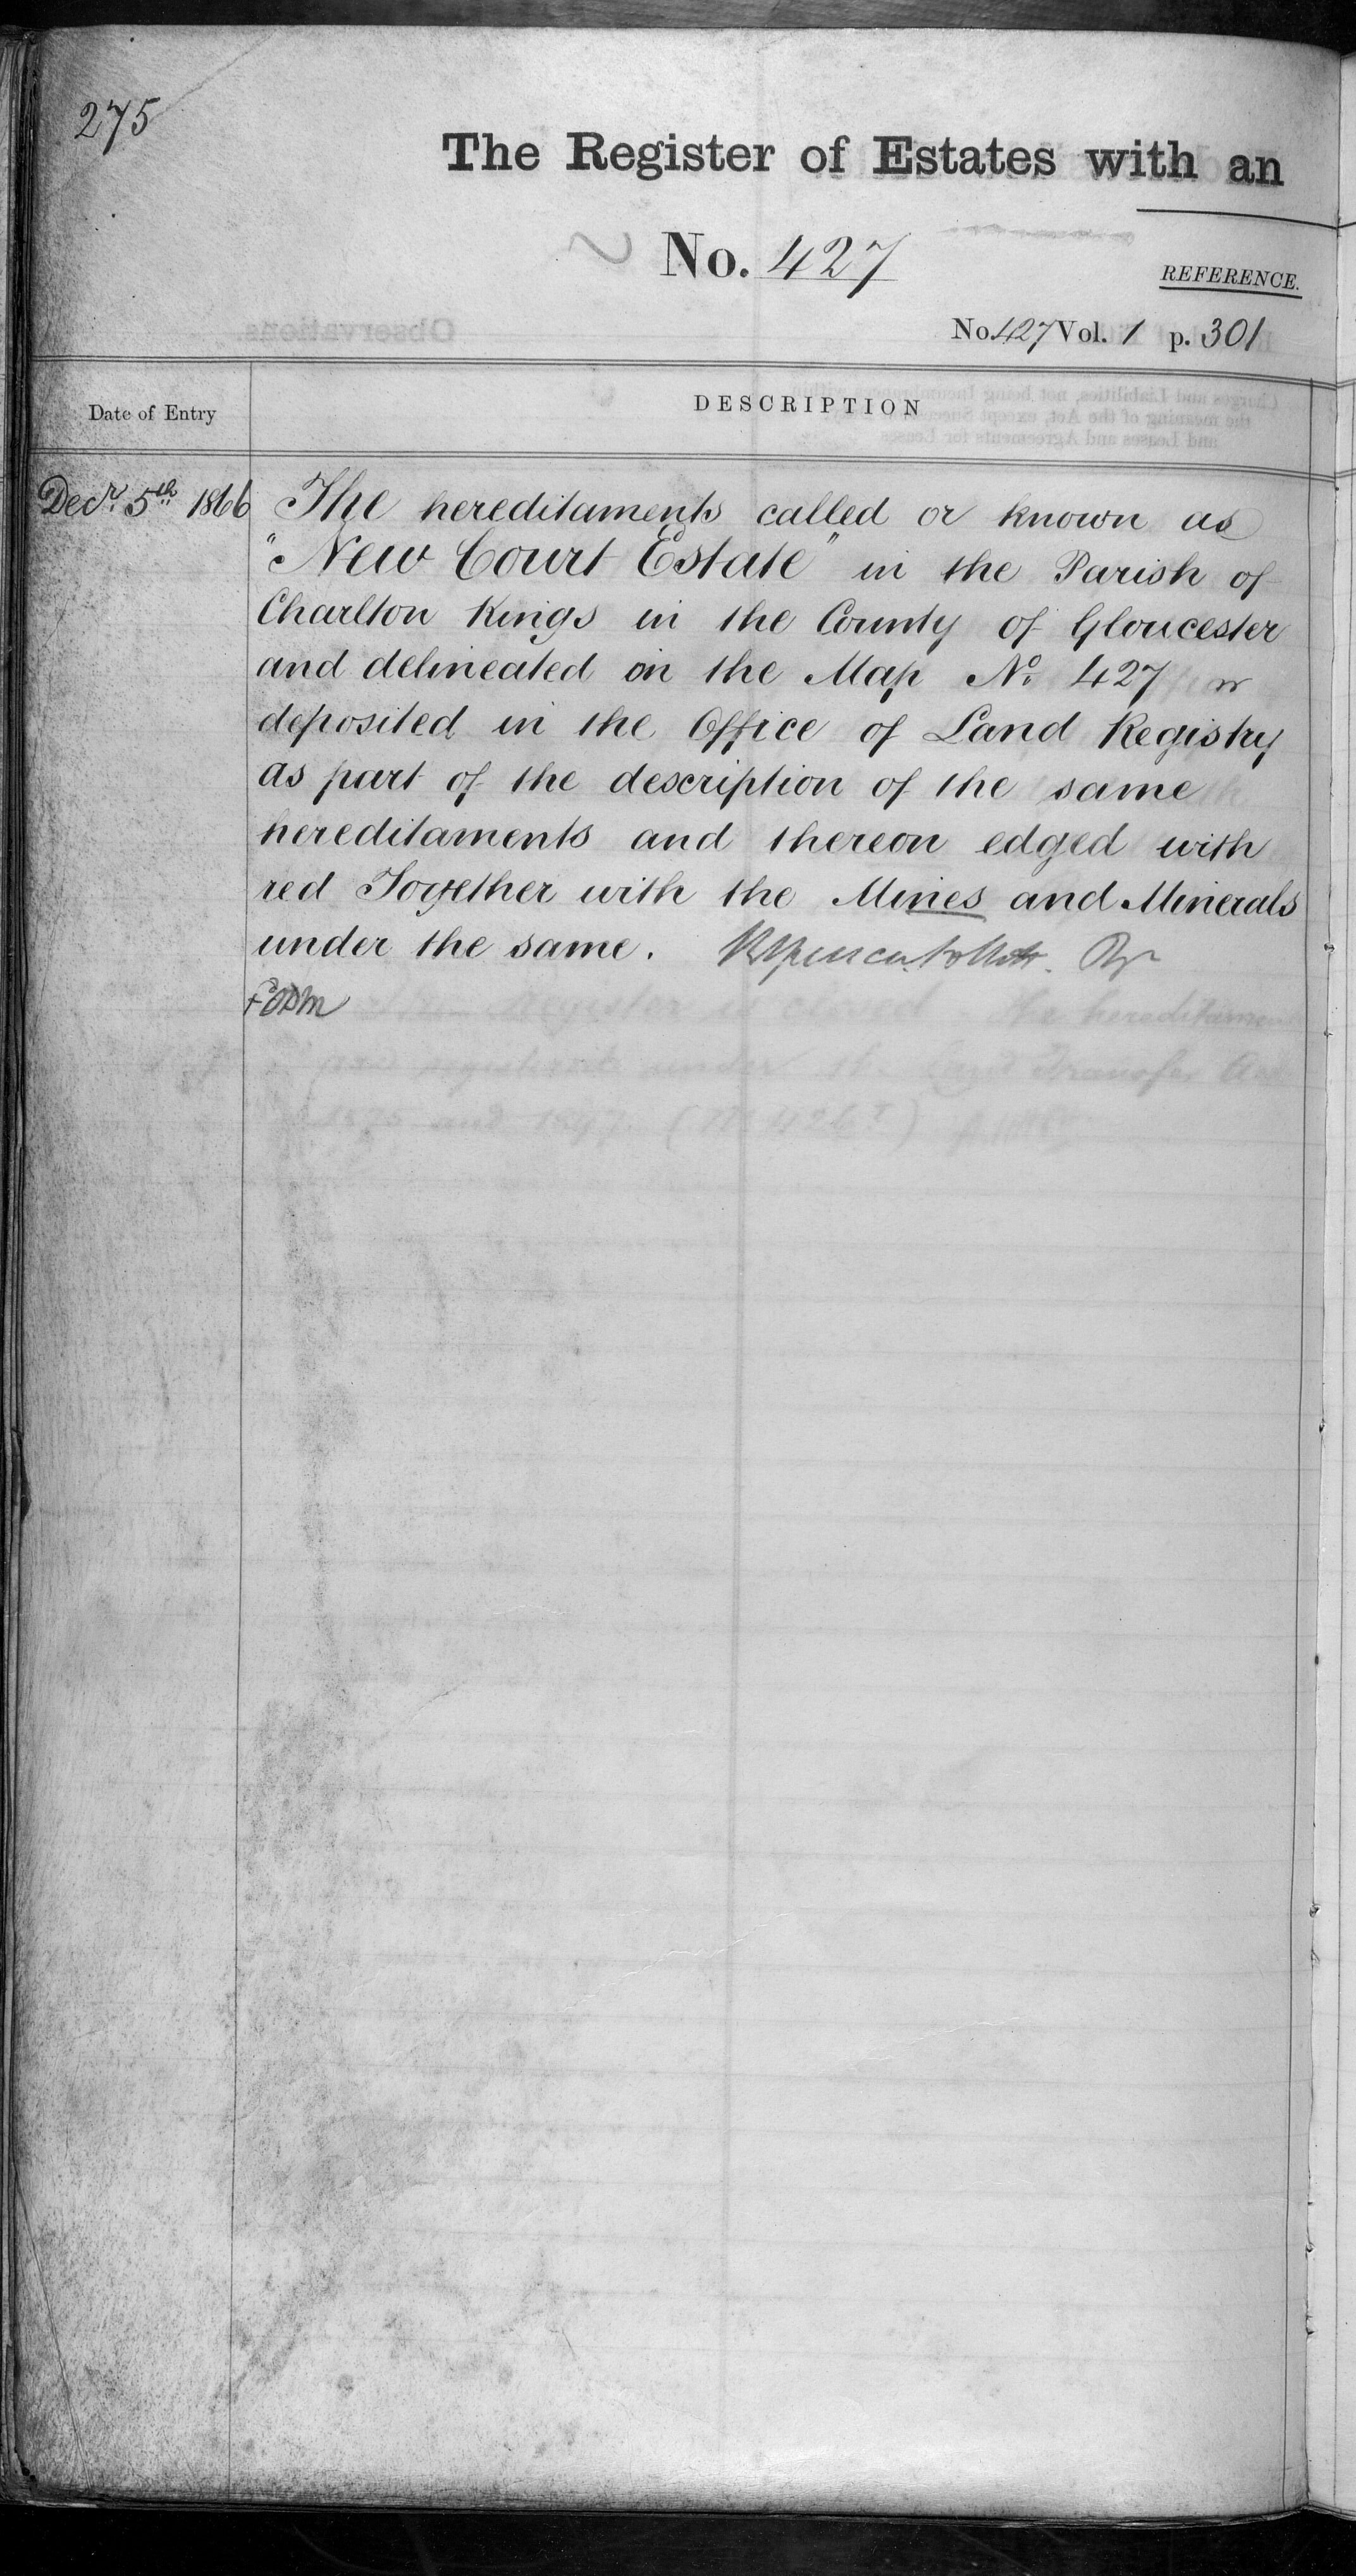 275
The Register of Estates with an
No. 427
REFERENCE.
No 427 Vol. 1 p. 301
Date of Entry
DESCRIPTION
Decr. 5th 1866
The hereditaments called or known as
"New Court Estate" in the Parish of
Charlton Kings in the County of Gloucester
and delineated on the Map No. 427
deposited in the Office of Land Registry
as part of the description of the same
hereditaments and thereon edged with
red Together with the Mines and Minerals
under the same.
Register is closed the hereditaments
registered under the Land Transfer Acts
1875 and 1897.